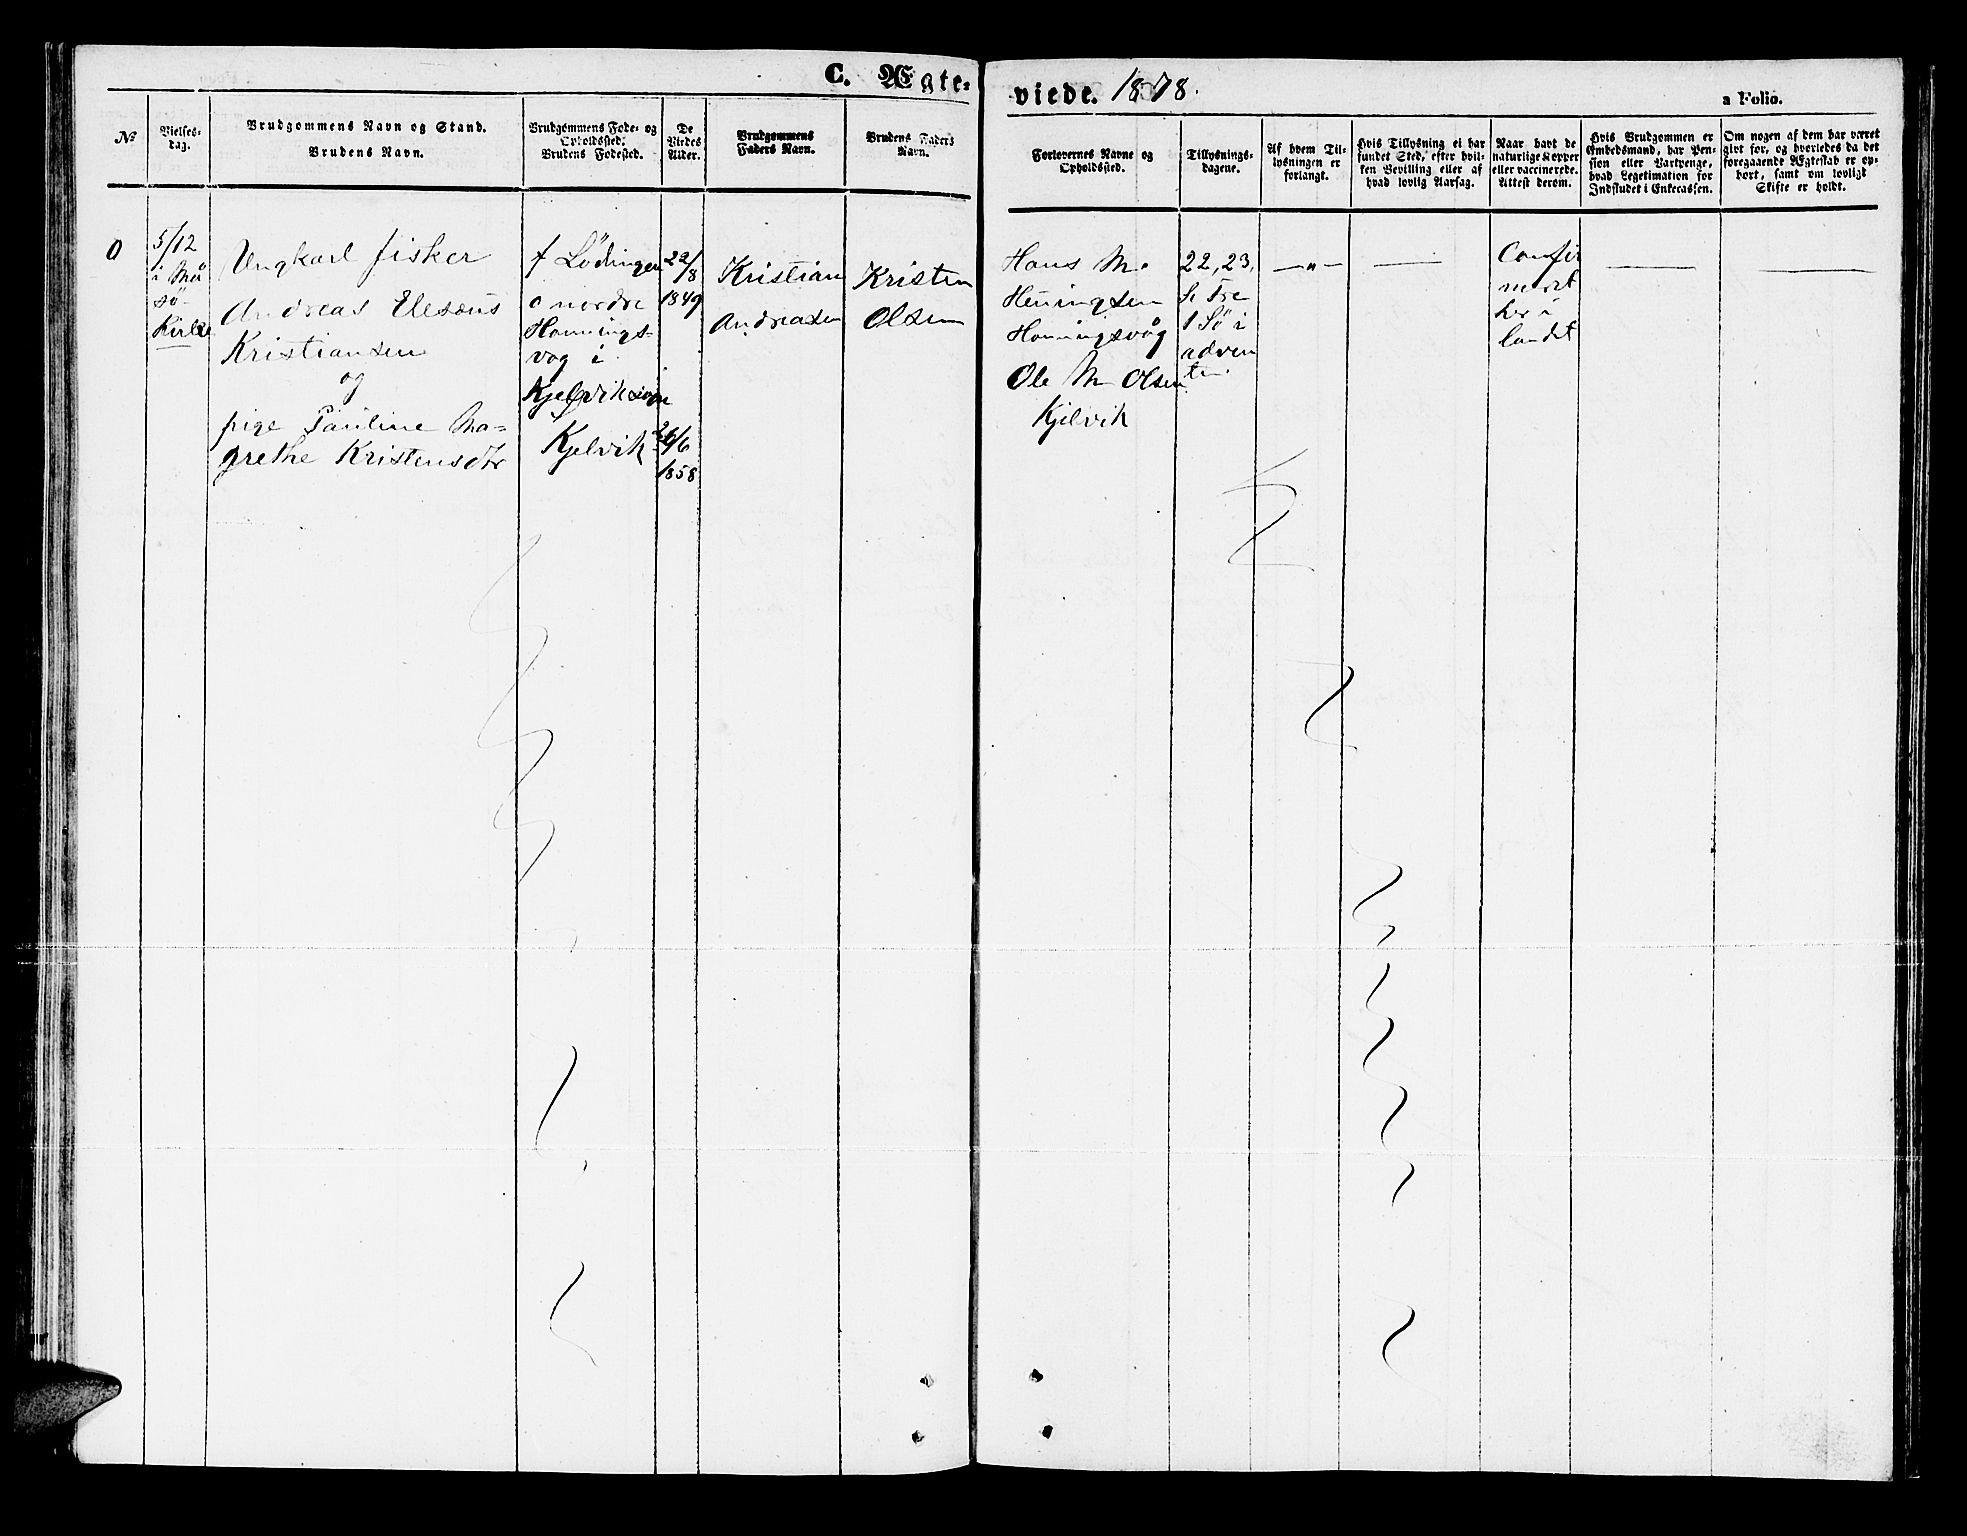 C. Ægte-
viede. 1878.
a Folio.
№
Vielses-
dag.
Brudgommens Navn og Stand.
Brudens Navn.
Brudgommens Føde- og
Opholdssted.
Brudens Fødested.
De
Viedes
Alder.
Brudgommens
Faders Navn.
Brudens Faders
Navn.
Forlovernes Navne og
Opholdssted.
Tillysnings-
dagene.
Af hvem Til-
lysningen er
forlangt.
Hvis Tillysning ei har
fundet Sted, efter hvil-
ken Bevilling eller af
hvad lovlig Aarsag.
Naar havt de
naturlige Kopper
eller vaccinerede.
Attest derom.
Hvis Brudgommen er
Embedsmand, har Pen-
sion eller Vartpenge,
hvad Legetimation for
Indskudet i Enkecassen.
Om nogen af dem har været
gift før, og hvorledes da det
foregaaende Ægteskab er op-
hørt, samt om lovligt
Skifte er holdt.
0
5/12
i Må
sö-
Kirke
Ungkarl fisker
Andreas Elesæus
Kristiansen
og
pige Pauline Ma-
grethe Kristensdtr
f Lödingen
o nordre
Honnings-
vog i
Kjelvik sogn
Kjelvik
22/8
1849
26/6
1858
Kristian
Andreasen
Kristen
Olsen
Hans M.
Heningsen
Honingsvåg
Ole M Olsen
Kjelvik
22, 23,
S. Tre
1 Sö i
adven
ten.
— " —
Confir
meret
her i
landet